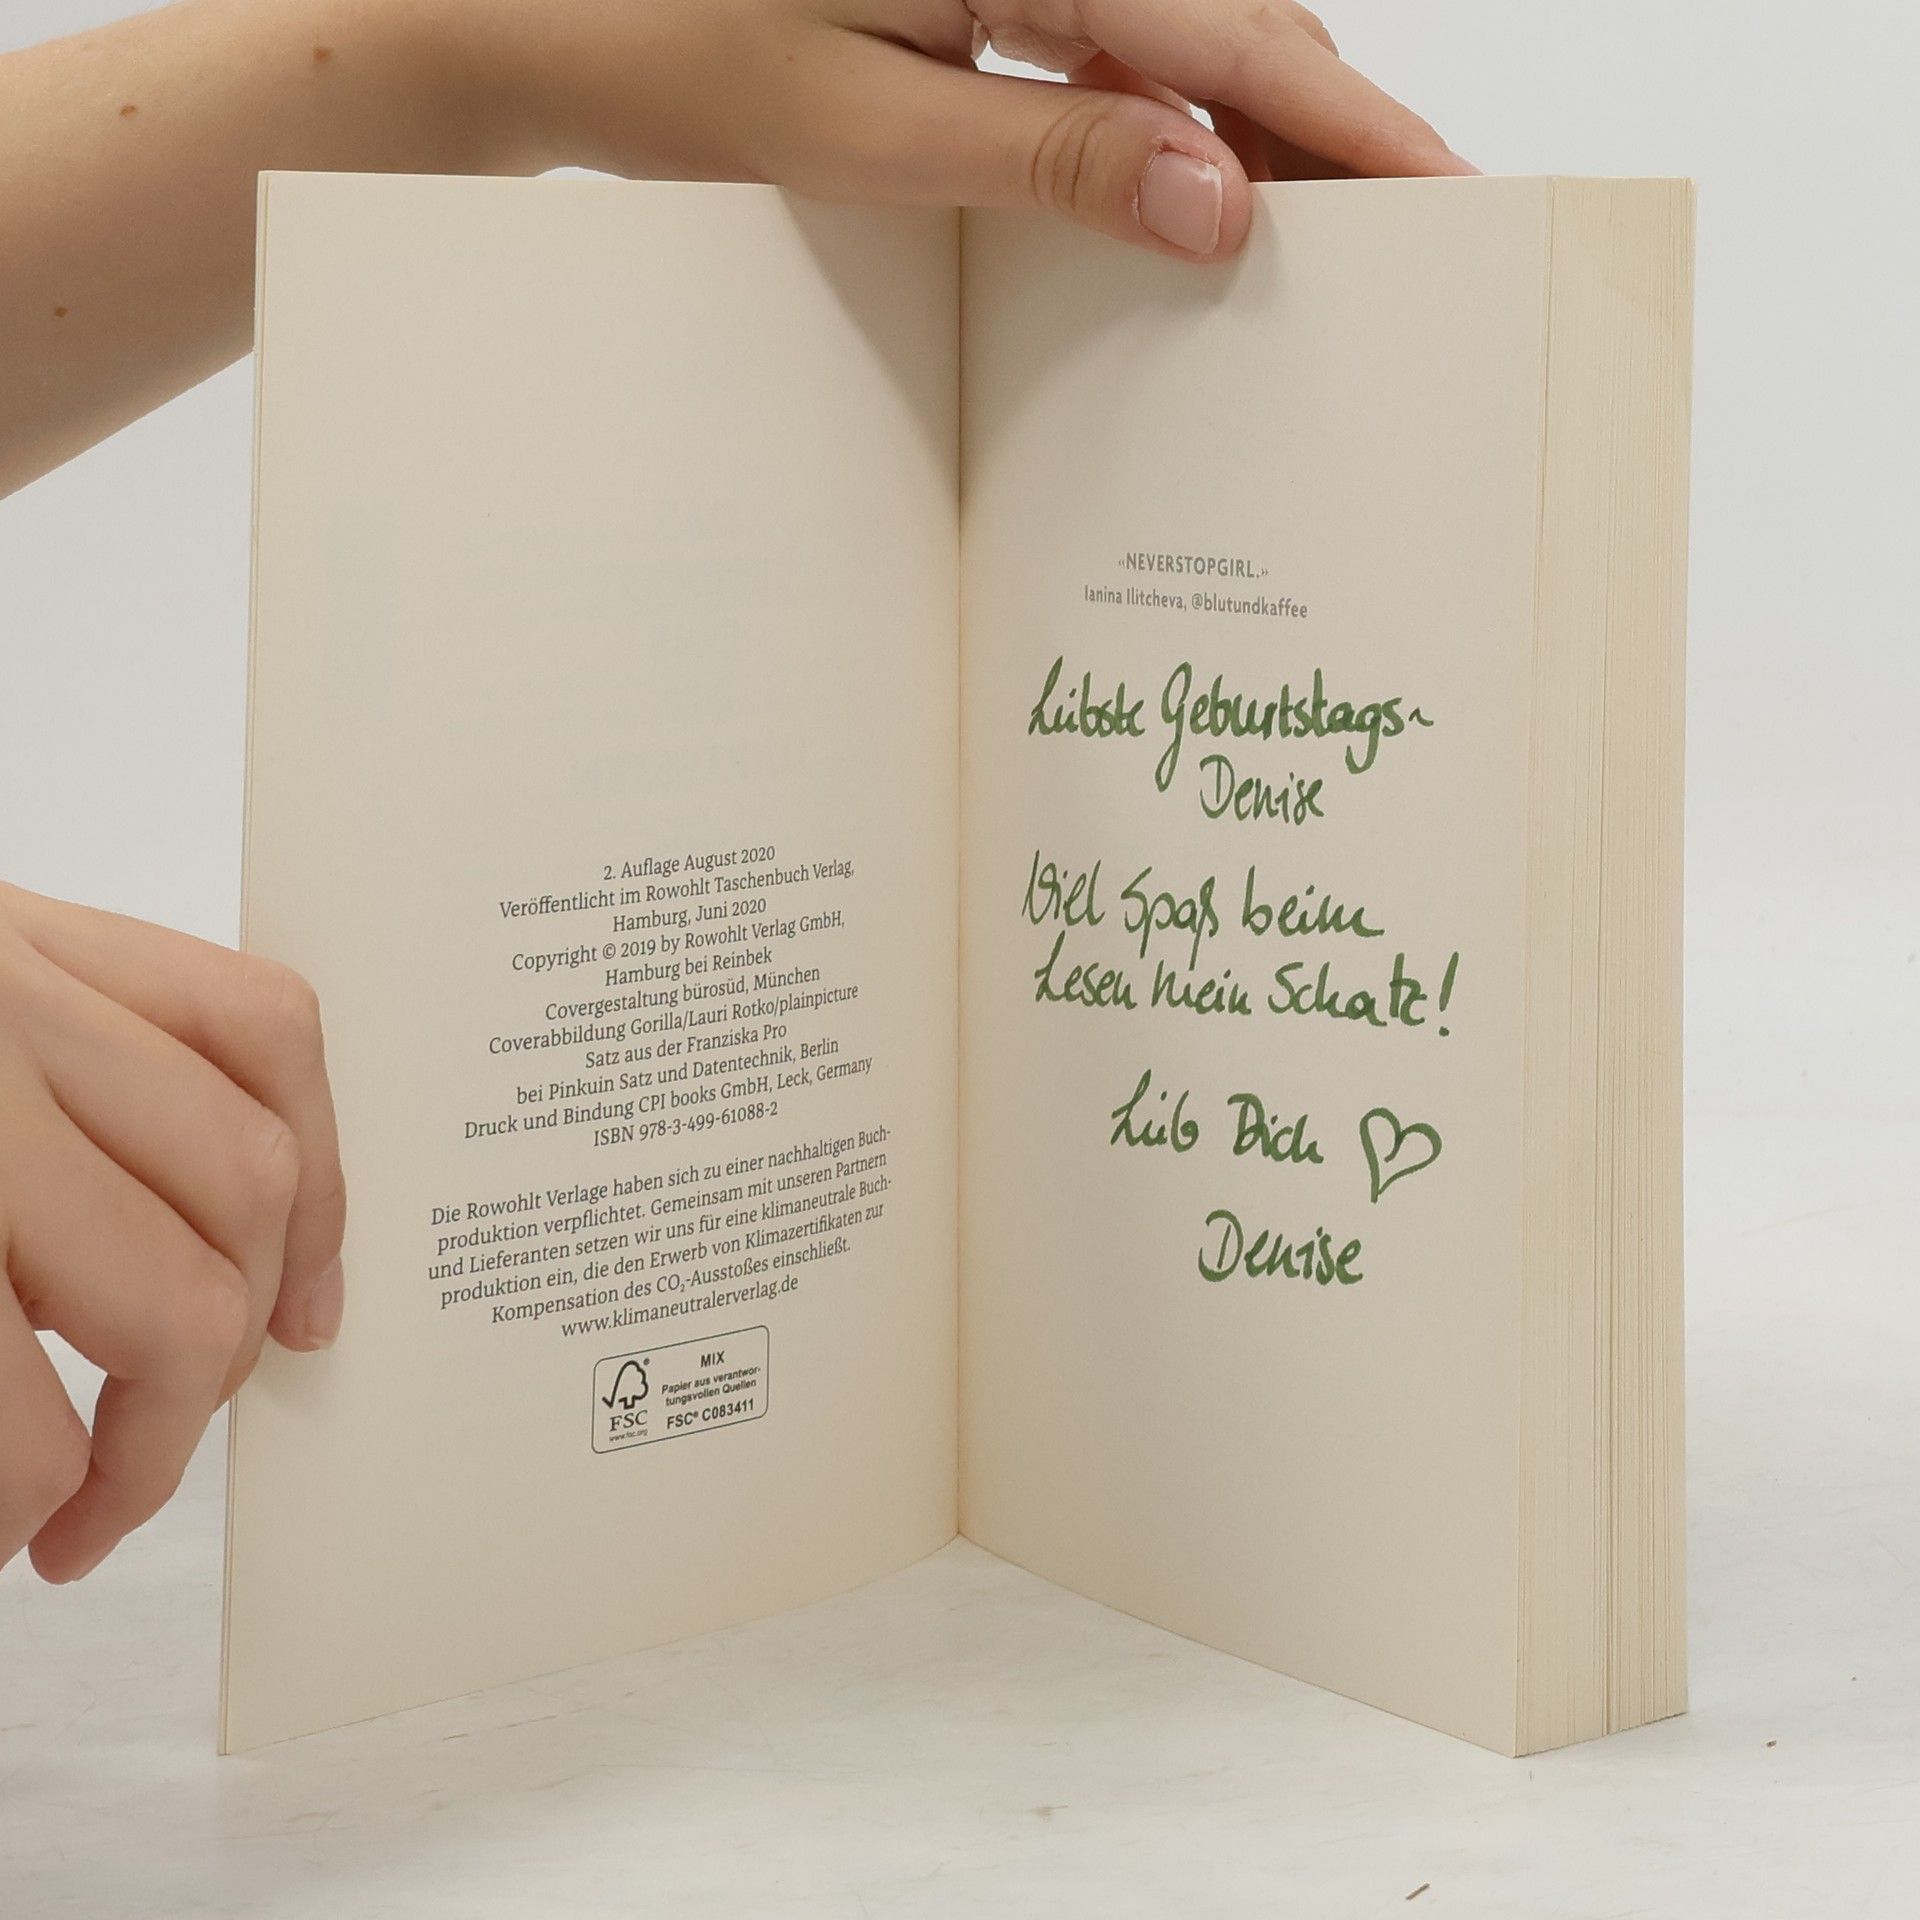 2. Auflage August 2020
Veröffentlicht im Rowohlt Taschenbuch Verlag,
Hamburg, Juni 2020
Copyright © 2019 by Rowohlt Verlag GmbH,
Hamburg bei Reinbek
Covergestaltung bürosüd, München
Coverabbildung Gorilla/Lauri Rotko/plainpicture
Satz aus der Franziska Pro
bei Pinkuin Satz und Datentechnik, Berlin
Druck und Bindung CPI books GmbH, Leck, Germany
ISBN 978-3-499-61088-2
Die Rowohlt Verlage haben sich zu einer nachhaltigen Buch-
produktion verpflichtet. Gemeinsam mit unseren Partnern
und Lieferanten setzen wir uns für eine klimaneutrale Buch-
produktion ein, die den Erwerb von Klimazertifikaten zur
Kompensation des CO₂-Ausstoßes einschließt.
www.klimaneutralerverlag.de
MIX
Papier aus verantwor-
tungsvollen Quellen
FSC® C083411
FSC
www.fsc.org
«NEVERSTOPGIRL.»
Ianina Ilitcheva, @blutundkaffee
Liebste Geburtstags-
Denise
Viel Spaß beim
Lesen mein Schatz!
Lieb Dich ♡
Denise